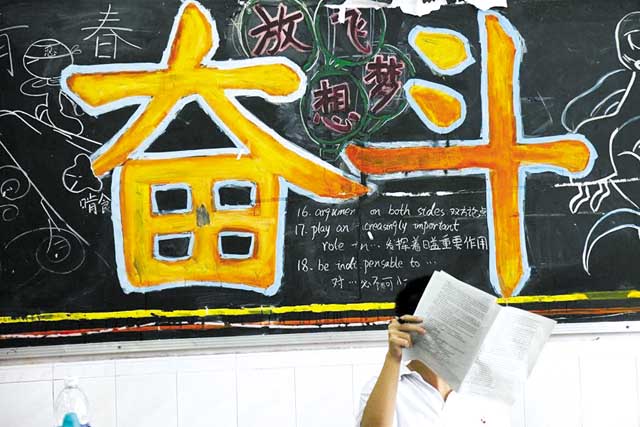 春
放飞
梦想
奋斗
啃食
16. argument on both sides 双方论点
17. play an increasingly important
role in ... 发挥着日益重要作用
18. be indispensable to ...
对 ... 必不可少